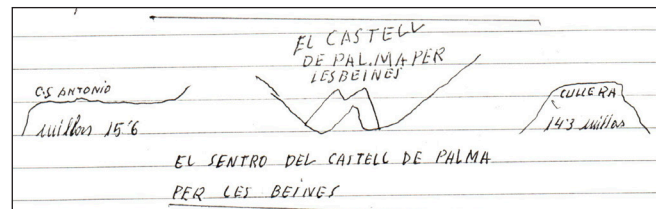 EL CASTELL
DE PAL.MA PER
LES BEINES
C.S ANTONIO
millas 15'6
CULLERA
14'3 millas
EL SENTRO DEL CASTELL DE PALMA
PER LES BEINES